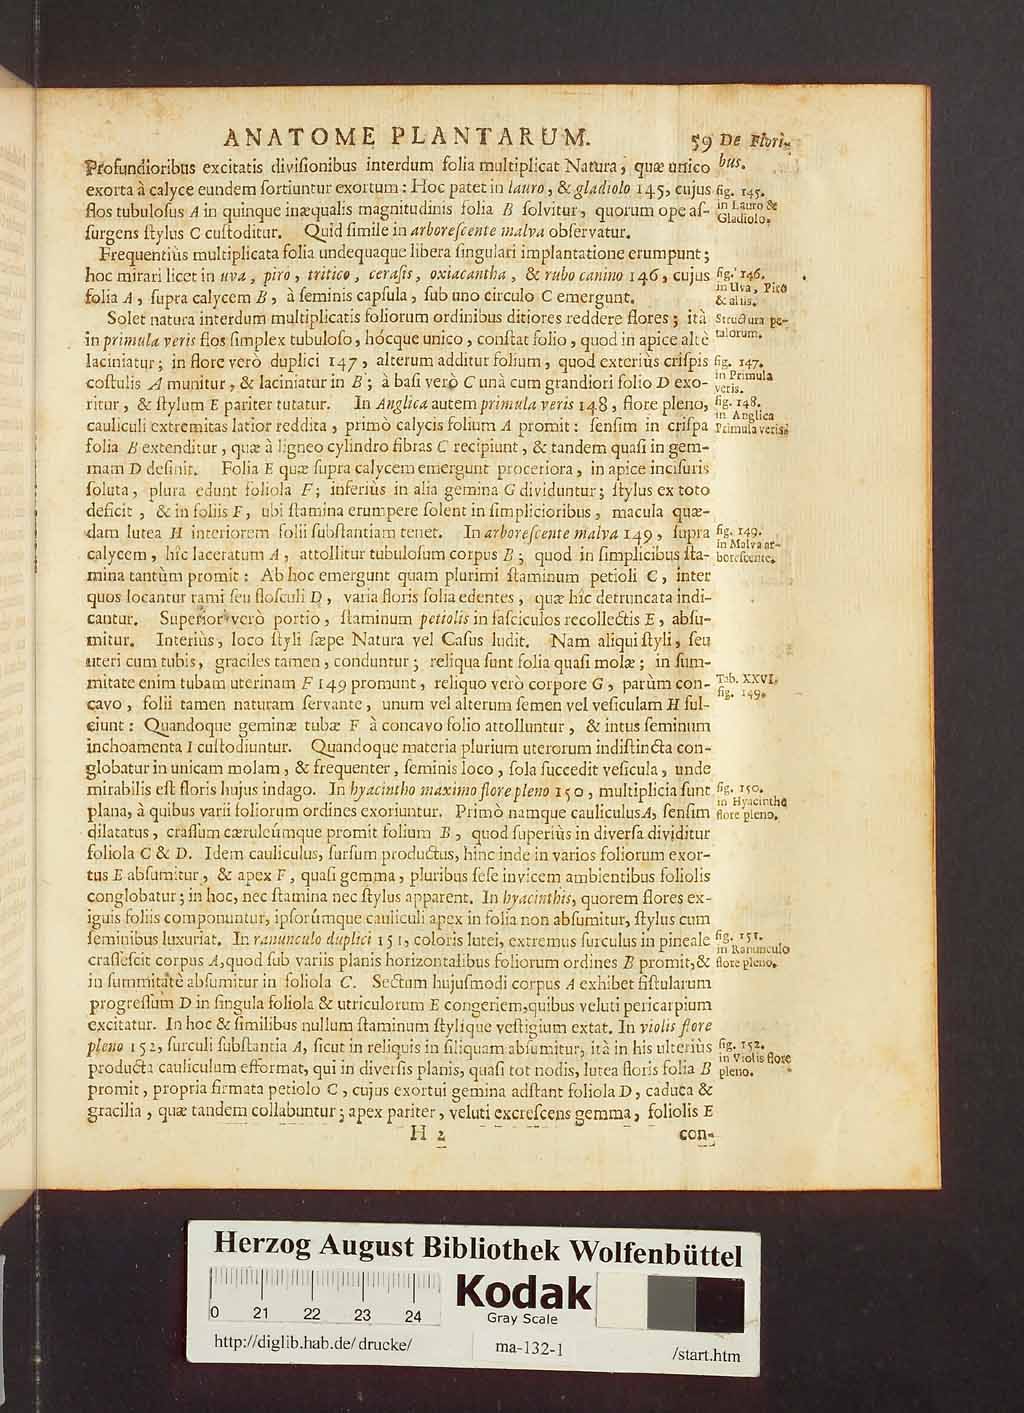 ANATOME PLANTARUM. 59 De Flori-
bus.
Profundioribus excitatis diviſionibus interdum folia multiplicat Natura, quæ unico
exorta à calyce eundem ſortiuntur exortum: Hoc patet in lauro, & gladiolo 145, cujus
flos tubuloſus A in quinque inæqualis magnitudinis folia B ſolvitur, quorum ope aſ-
ſurgens ſtylus C cuſtoditur. Quid ſimile in arboreſcente malva obſervatur.
fig. 145.
in Lauro &
Gladiolo.
Frequentiùs multiplicata folia undequaque libera ſingulari implantatione erumpunt;
hoc mirari licet in uva, piro, tritico, ceraſis, oxiacantha, & rubo canino 146, cujus
folia A, ſupra calycem B, à ſeminis capſula, ſub uno circulo C emergunt.
fig. 146.
in Uva, Piro
& aliis.
Solet natura interdum multiplicatis foliorum ordinibus ditiores reddere flores; ità
in primula veris flos ſimplex tubuloſo, hócque unico, conſtat folio, quod in apice altè
laciniatur; in flore verò duplici 147, alterum additur folium, quod exteriùs criſpis
coſtulis A munitur, & laciniatur in B; à baſi verò C unà cum grandiori folio D exo-
ritur, & ſtylum E pariter tutatur. In Anglica autem primula veris 148, flore pleno,
cauliculi extremitas latior reddita, primò calycis folium A promit: ſenſim in criſpa
folia B extenditur, quæ à ligneo cylindro fibras C recipiunt, & tandem quaſi in gem-
mam D deſinit. Folia E quæ ſupra calycem emergunt proceriora, in apice inciſuris
ſoluta, plura edunt foliola F; inferiùs in alia gemina G dividuntur; ſtylus ex toto
deficit, & in foliis F, ubi ſtamina erumpere ſolent in ſimplicioribus, macula quæ-
dam lutea H interiorem folii ſubſtantiam tenet. In arboreſcente malva 149, ſupra
calycem, hîc laceratum A, attollitur tubuloſum corpus B; quod in ſimplicibus ſta-
mina tantùm promit: Ab hoc emergunt quam plurimi ſtaminum petioli C, inter
quos locantur rami ſeu floſculi D, varia floris folia edentes, quæ hîc detruncata indi-
cantur. Superior verò portio, ſtaminum petiolis in faſciculos recollectis E, abſu-
mitur. Interiùs, loco ſtyli ſæpe Natura vel Caſus ludit. Nam aliqui ſtyli, ſeu
uteri cum tubis, graciles tamen, conduntur; reliqua ſunt folia quaſi molæ; in ſum-
mitate enim tubam uterinam F 149 promunt, reliquo verò corpore G, parùm con-
cavo, folii tamen naturam ſervante, unum vel alterum ſemen vel veſiculam H ful-
ciunt: Quandoque geminæ tubæ F à concavo folio attolluntur, & intus ſeminum
inchoamenta I cuſtodiuntur. Quandoque materia plurium uterorum indiſtincta con-
globatur in unicam molam, & frequenter, ſeminis loco, ſola ſuccedit veſicula, unde
mirabilis eſt floris hujus indago. In hyacintho maximo flore pleno 150, multiplicia ſunt
plana, à quibus varii foliorum ordines exoriuntur. Primò namque cauliculus A, ſenſim
dilatatus, craſſum cæruleúmque promit folium B, quod ſuperiùs in diverſa dividitur
foliola C & D. Idem cauliculus, ſurſum productus, hinc inde in varios foliorum exor-
tus E abſumitur, & apex F, quaſi gemma, pluribus ſeſe invicem ambientibus foliolis
conglobatur; in hoc, nec ſtamina nec ſtylus apparent. In hyacinthis, quorem flores ex-
iguis foliis componuntur, ipſorúmque cauliculi apex in folia non abſumitur, ſtylus cum
ſeminibus luxuriat. In ranunculo duplici 151, coloris lutei, extremus ſurculus in pineale
craſſeſcit corpus A, quod ſub variis planis horizontalibus foliorum ordines B promit, &
in ſummitate abſumitur in foliola C. Sectum hujuſmodi corpus A exhibet fiſtularum
progreſſum D in ſingula foliola & utriculorum E congeriem, quibus veluti pericarpium
excitatur. In hoc & ſimilibus nullum ſtaminum ſtylique veſtigium extat. In violis flore
pleno 152, ſurculi ſubſtantia A, ſicut in reliquis in ſiliquam abſumitur, ità in his ulteriùs
producta cauliculum efformat, qui in diverſis planis, quaſi tot nodis, lutea floris folia B
promit, propria firmata petiolo C, cujus exortui gemina adſtant foliola D, caduca &
gracilia, quæ tandem collabuntur; apex pariter, veluti excreſcens gemma, foliolis E
Structura pe-
talorum.
fig. 147.
in Primula
veris.
fig. 148.
in Anglica
Primula veris.
fig. 149.
in Malva ar-
boreſcente.
Tab. XXVI.
fig. 149.
fig. 150.
in Hyacintho
flore pleno.
fig. 151.
in Ranunculo
flore pleno.
fig. 152.
in Violis flore
pleno.
H 2 con-
Herzog August Bibliothek Wolfenbüttel
0 21 22 23 24
Kodak
Gray Scale
http://diglib.hab.de/drucke/ ma-132-1 /start.htm